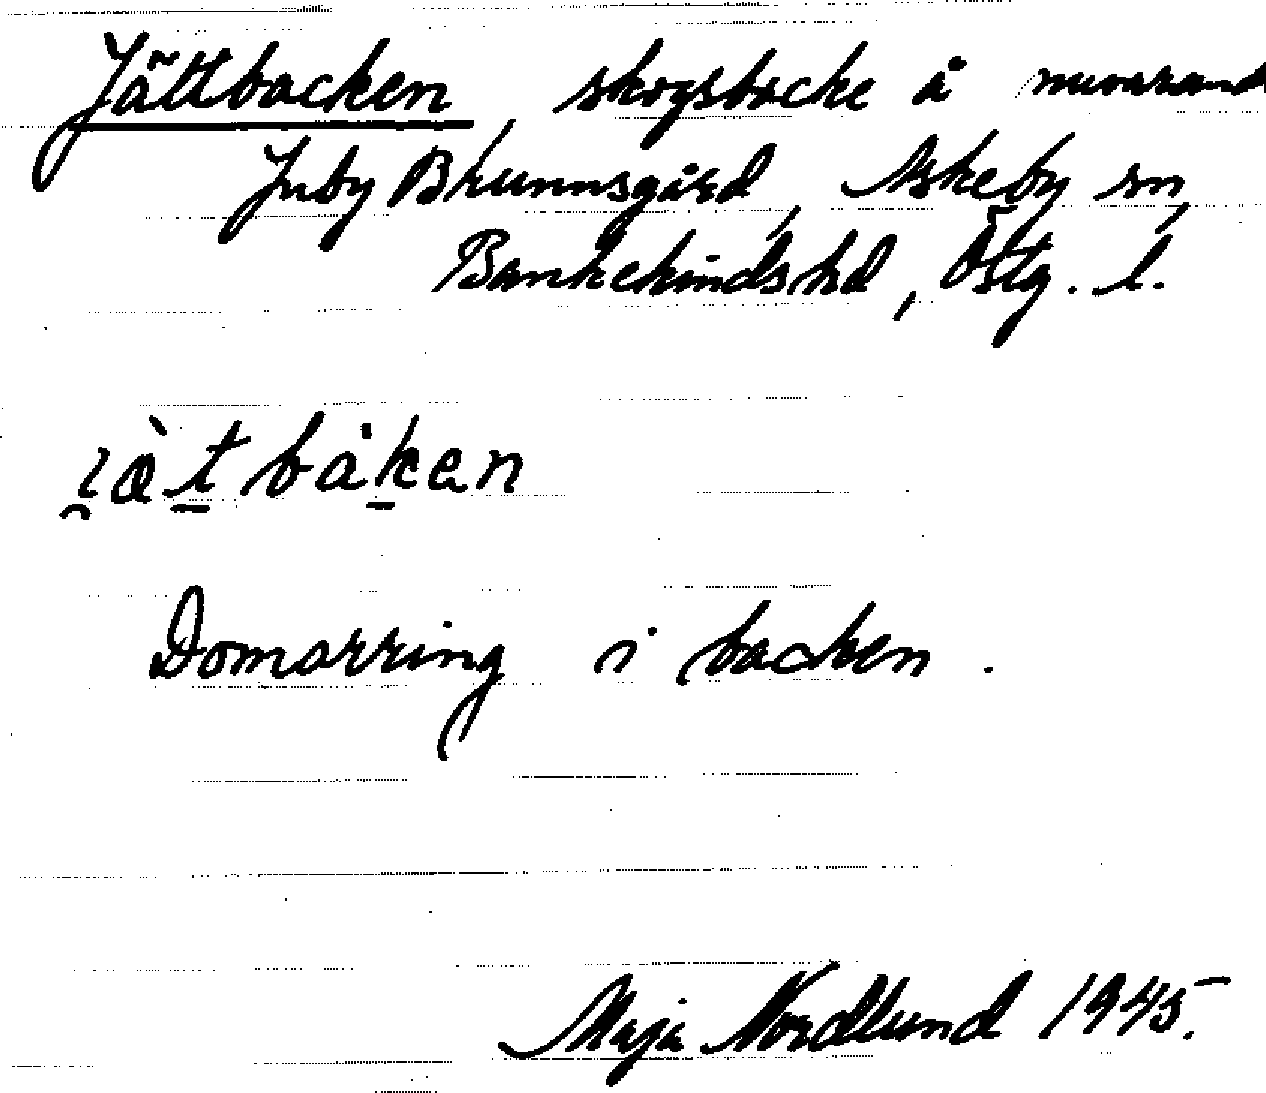 Jättbacken, skogsbacke å nuvarand
Juby Brunnsgård, Askeby sn,
Bankekinds hd, Östg. l.
i̯ä̀t bákan
Domarring i backen.
Maja Nordlund 1945.